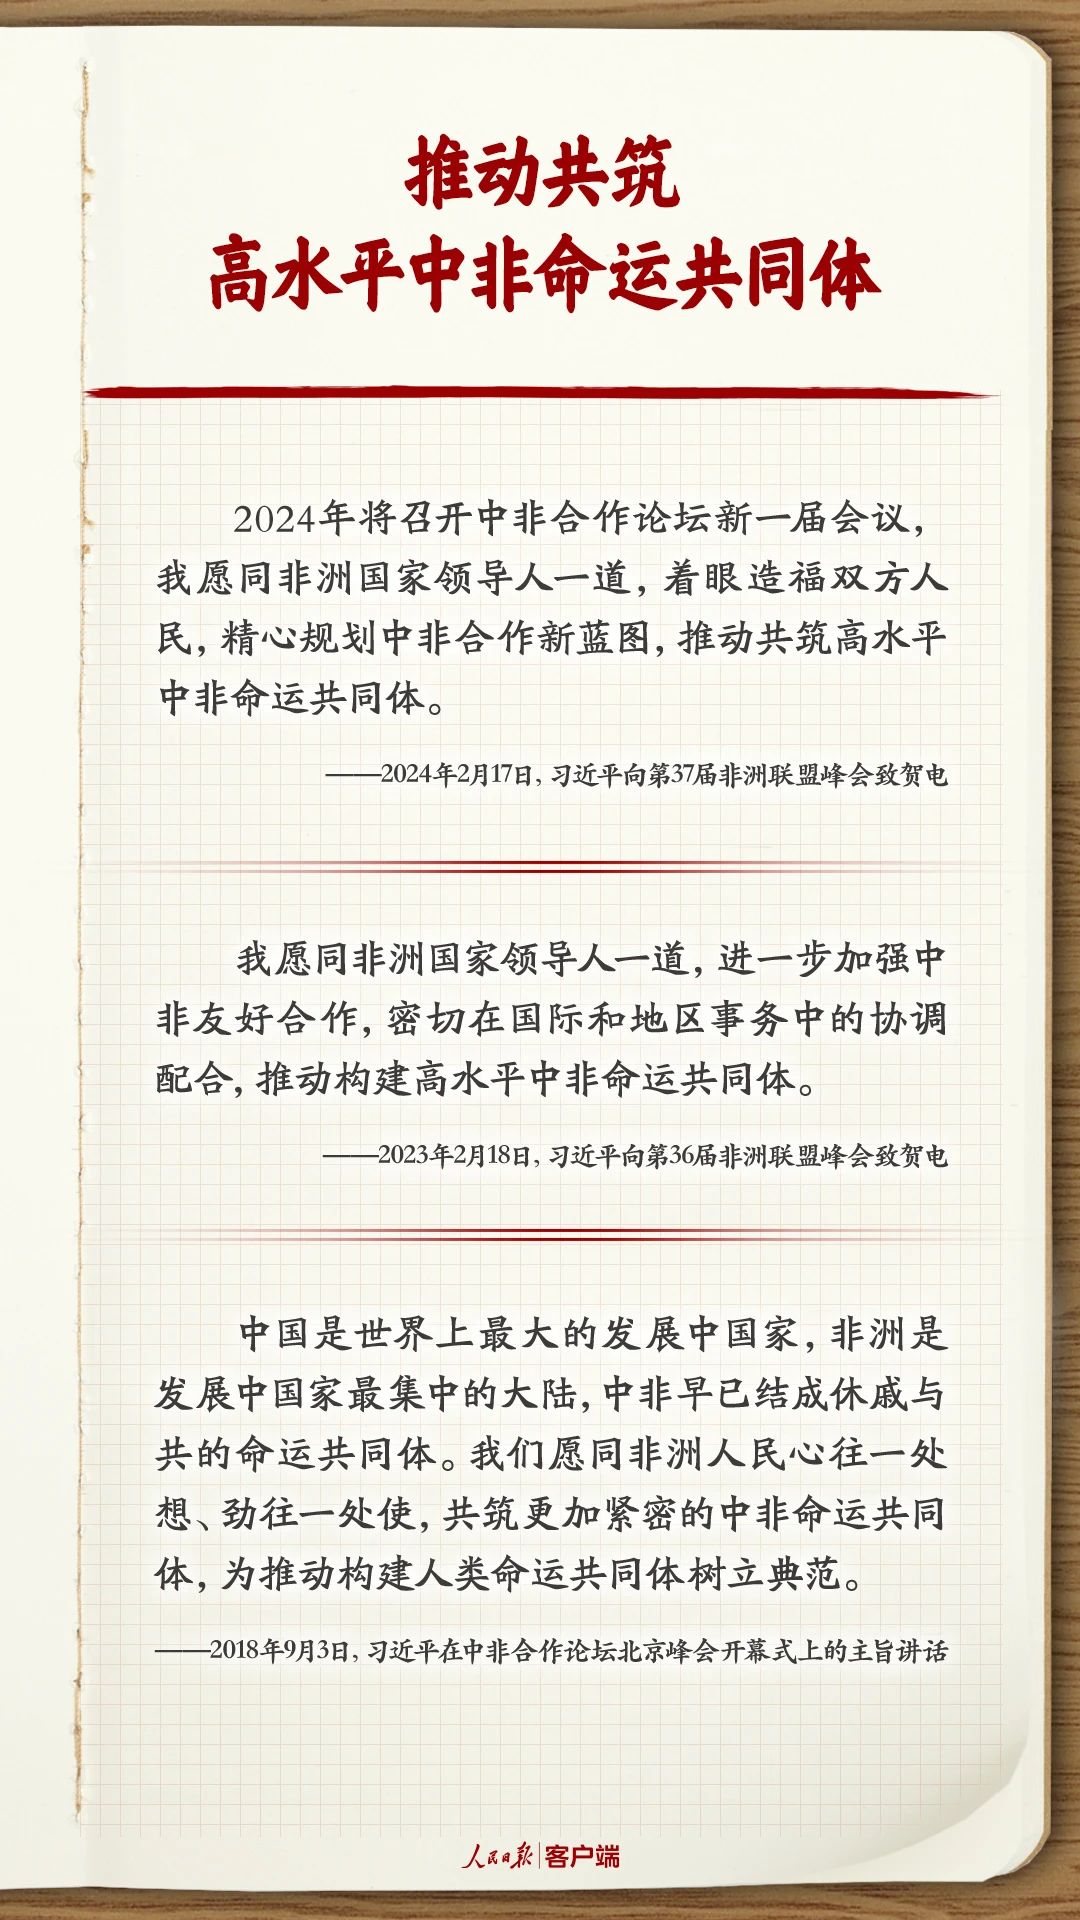 推动共筑
高水平中非命运共同体
2024年将召开中非合作论坛新一届会议，
我愿同非洲国家领导人一道，着眼造福双方人
民，精心规划中非合作新蓝图，推动共筑高水平
中非命运共同体。
——2024年2月17日，习近平向第37届非洲联盟峰会致贺电
我愿同非洲国家领导人一道，进一步加强中
非友好合作，密切在国际和地区事务中的协调
配合，推动构建高水平中非命运共同体。
——2023年2月18日，习近平向第36届非洲联盟峰会致贺电
中国是世界上最大的发展中国家，非洲是
发展中国家最集中的大陆，中非早已结成休戚与
共的命运共同体。我们愿同非洲人民心往一处
想、劲往一处使，共筑更加紧密的中非命运共同
体，为推动构建人类命运共同体树立典范。
——2018年9月3日，习近平在中非合作论坛北京峰会开幕式上的主旨讲话
人民日报 客户端